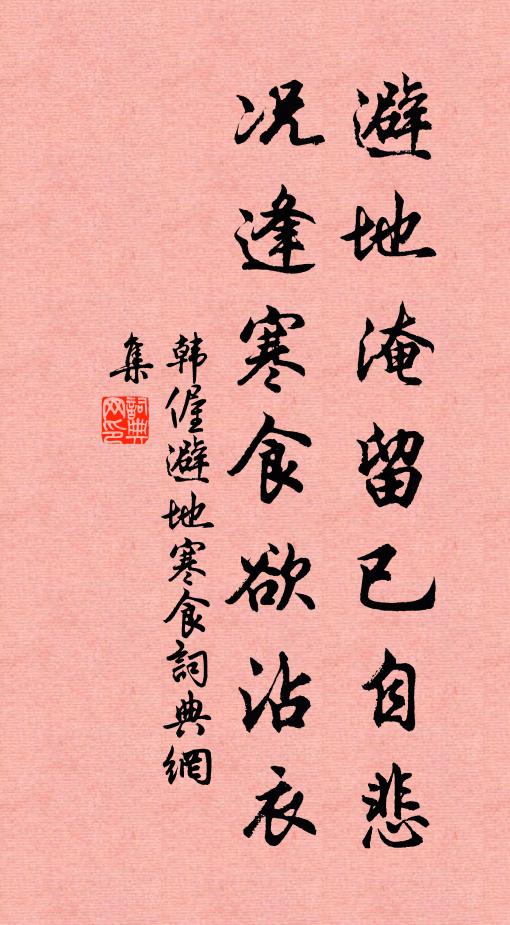 避地淹留已自悲
况逢寒食欲沾衣
韩偓避地寒食詞典網
集
詞典
网印